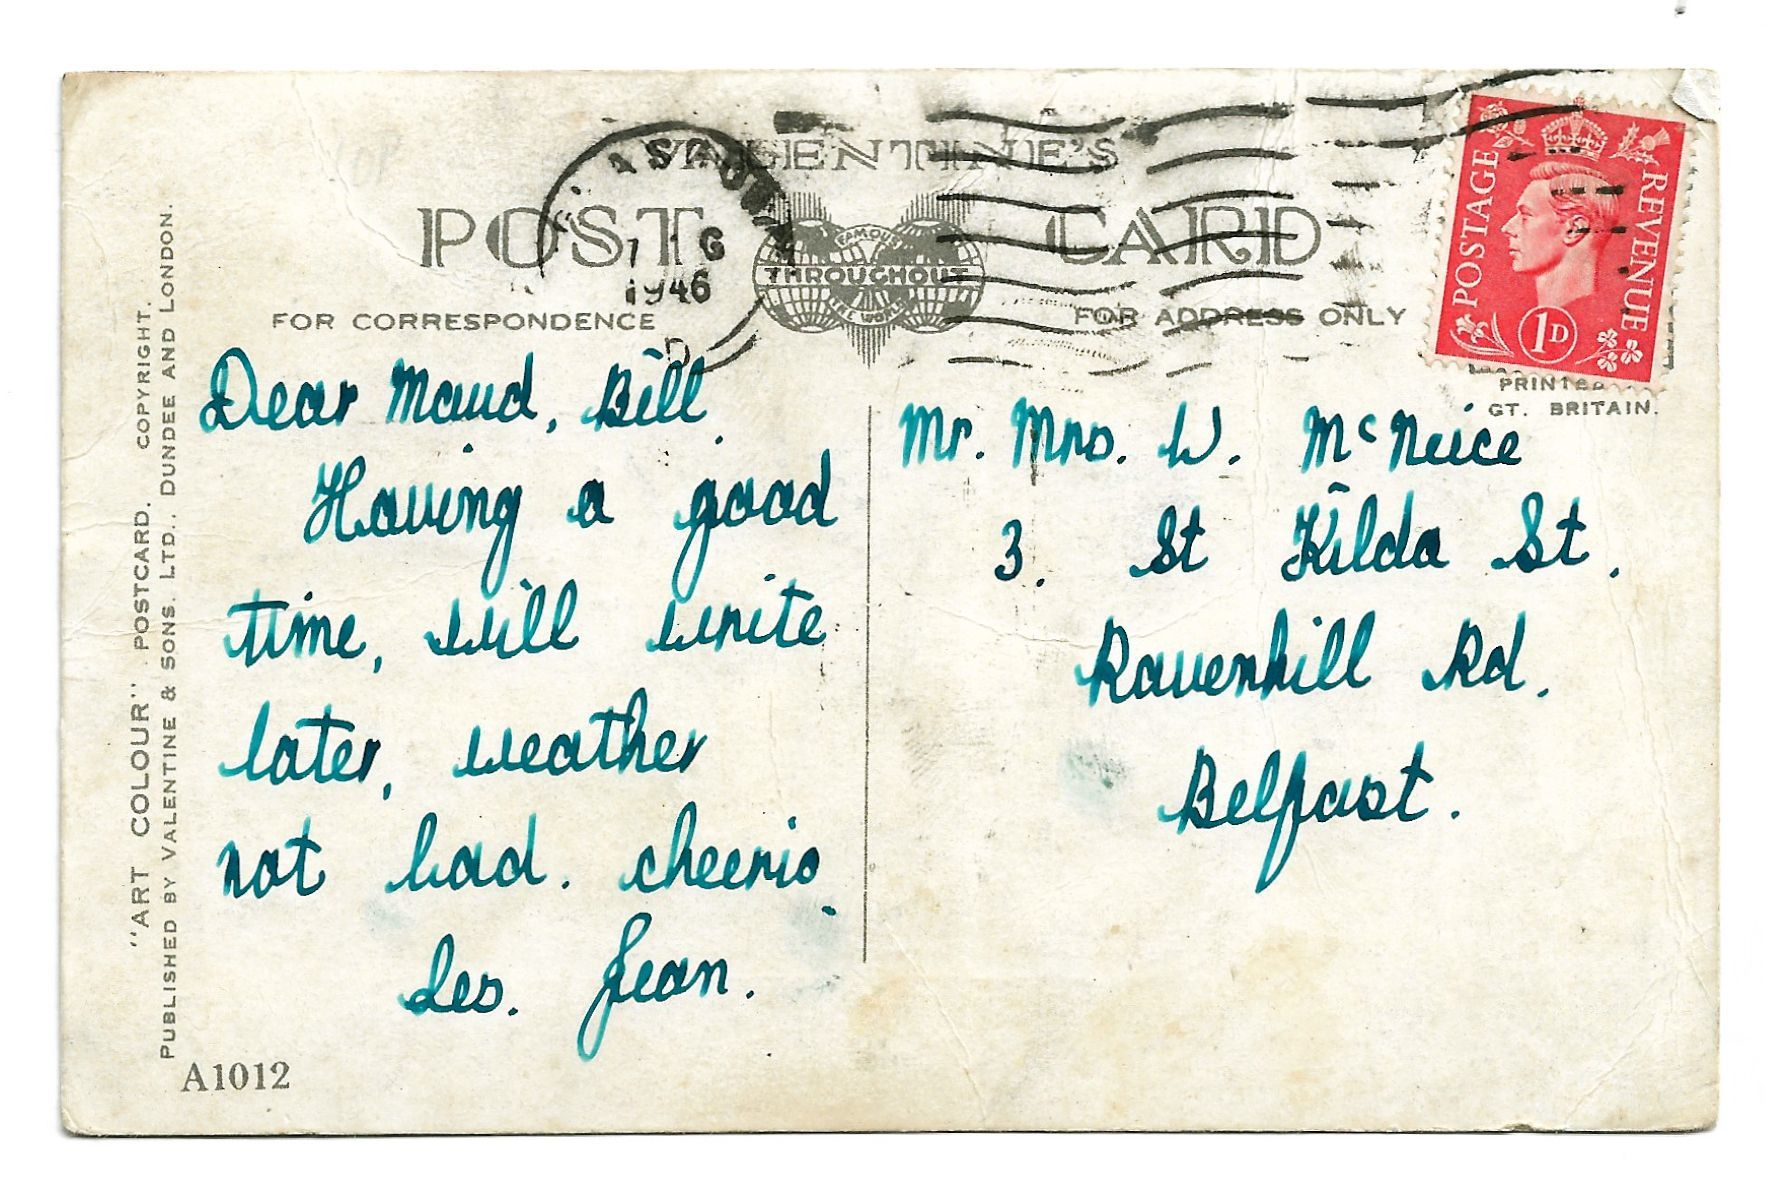 VALENTINE'S
POST CARD
FAMOUS
THROUGHOUT
THE WORLD
GLASGOW
1946
FOR CORRESPONDENCE
FOR ADDRESS ONLY
POSTAGE
REVENUE
1D
PRINTED
GT. BRITAIN.
Dear Maud, Bill,
Having a good
time, will write
later, weather
not bad. cheerio
Les. Jean.
Mr. Mrs. W. McNeice
3. St Kilda St.
Ravenhill Rd.
Belfast.
"ART COLOUR" POSTCARD. COPYRIGHT.
PUBLISHED BY VALENTINE & SONS. LTD., DUNDEE AND LONDON.
A1012